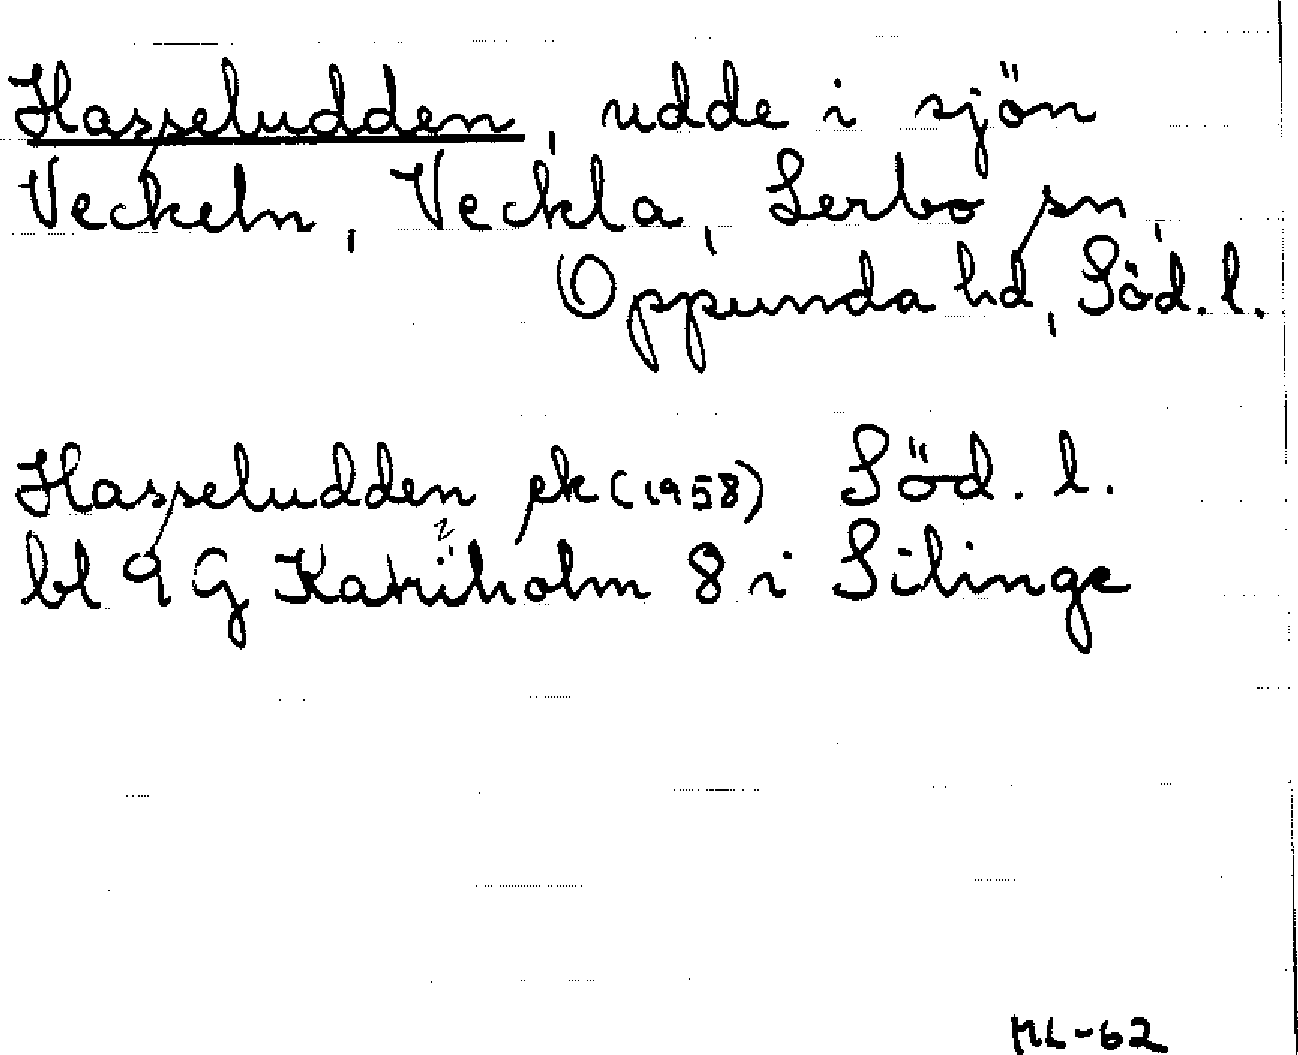 Hasseludden, udde i sjön
Veckeln, Veckla, Lerbo sn,
Oppunda hd, Söd. l.
Hasseludden ek (1958) Söd. l.
bl 9 G Katrineholm 8 i Silinge
ML-62